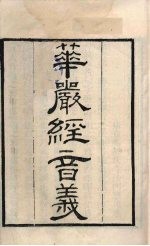 華嚴經音義